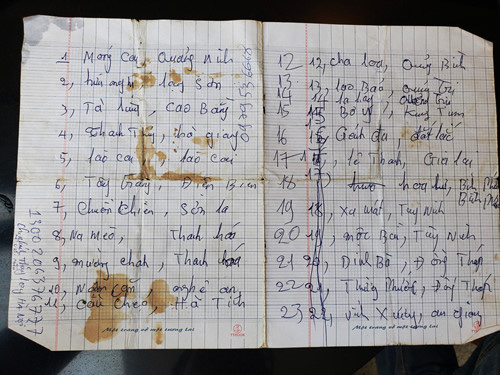 1 Móng Cái, Quảng Ninh
2, hữu nghị, lạng Sơn
3, Tà lùng, CAO Bằng
4, Thanh Thủy, hà giang
5, lào cai, lào cai
6, Tây trang, Điện Biên
7, Chiềng Khương, Sơn la
8, Na mèo, Thanh hoá
9, Thanh hoá
10, Nậm Cắn, nghệ an
11, Cầu Treo, Hà Tĩnh
Một trang vở một tương lai
12 12, cha loa, Quảng Bình
13 13, lao Bảo, quảng Trị
14 14 la lay, quảng trị
15 15 Bờ Y, Kung Tum
16 16, đắk lắc
17 lê Thanh, Gia lai
18 17 hoa lư, Bình Phước
19 18, Xa mát, Tây Ninh
20 19, mộc Bài, Tây Ninh
21 20, Dinh Bà, Đồng Tháp
22 21, Thường Phước, Đồng Tháp
23 22, vĩnh Xương, an giang
Một trang vở một tương lai